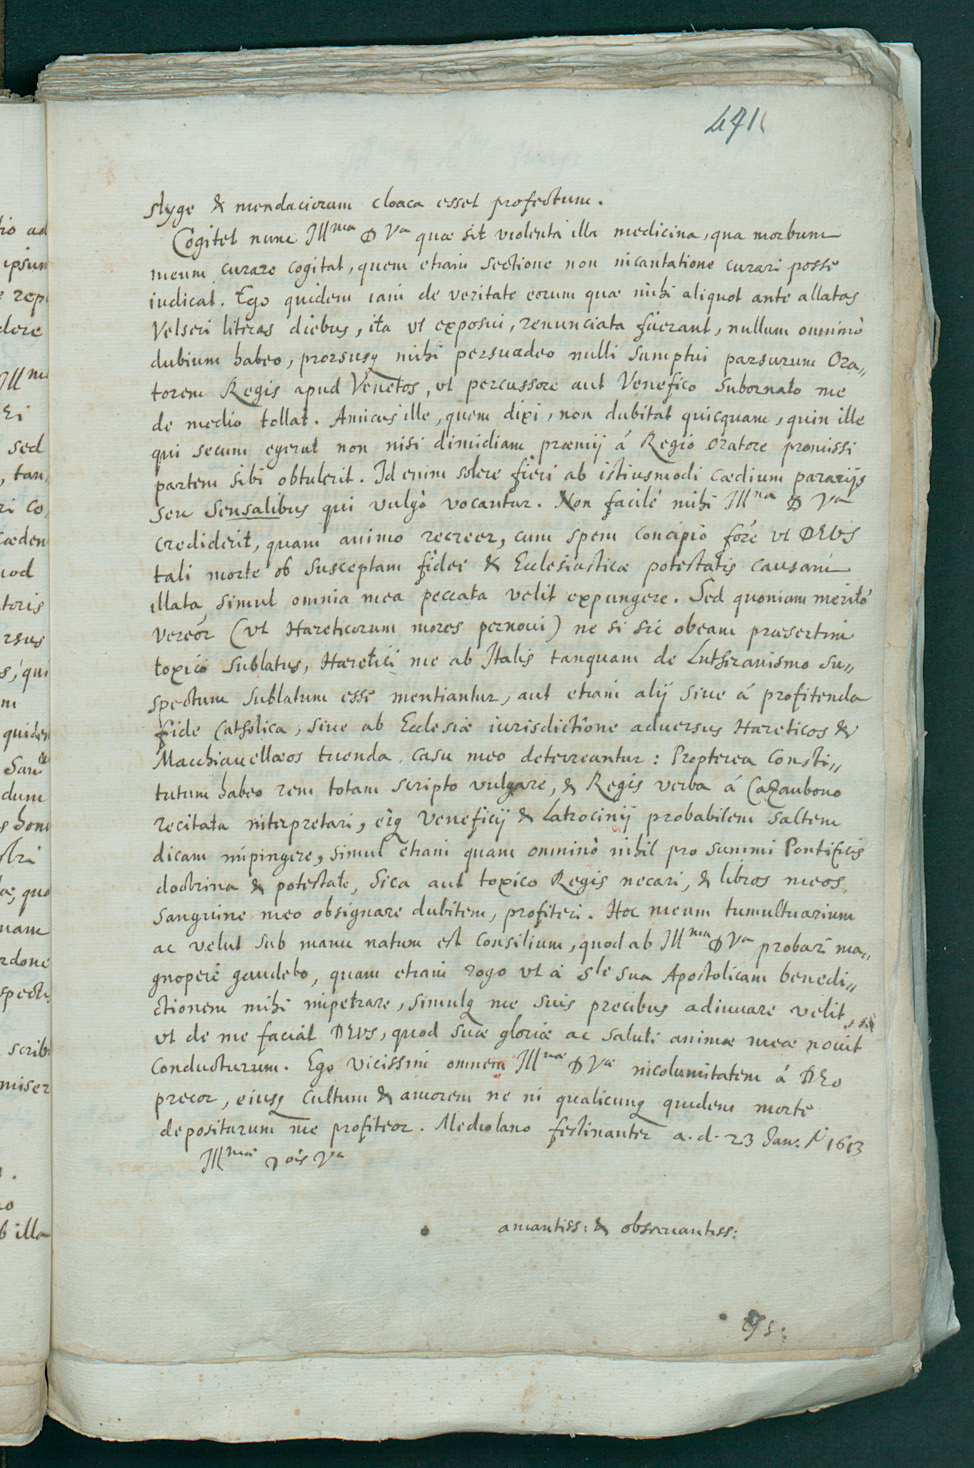 491
styge & mendaciorum cloaca esset profectum.
Cogitet nunc Illma D Va quæ sit violenta illa medicina, qua morbum
meum curare cogitat, quem etiam sectione non incantatione curari posse
iudicat. Ego quidem iam de veritate eorum quæ mihi aliquot ante allatas
Velseri literas diebus, ita vt exposui, renunciata fuerant, nullum omninò
dubium habeo, prorsusq mihi persuadeo nulli sumptui parsurum Ora„
torem Regis apud Venetos, vt percussore aut Venefico subornato me
de medio tollat. Amicus ille, quem dixi, non dubitat quicquam, quin ille
qui secum egerat non nisi dimidiam præmij á Regio Oratore promissi
partem sibi obtulerit. Id enim solere fieri ab istiusmodi cædium pararijs
seu Sensalibus qui vulgò vocantur. Non facilè mihi Illma D Va
crediderit, quam animo recreer, cum spem concipio fore vt DEVS
tali morte ob susceptam fidei & Ecclesiasticæ potestatis causam
illata simul omnia mea peccata velit expungere. Sed quoniam meritò
vereor (vt Hæreticorum mores pernoui) ne si sic obeam præsertim
toxico sublatus, Hæretici me ab Italis tanquam de Lutheranismo su„
spectum sublatum esse mentiantur, aut etiam alij siue á profitenda
fide Catholica, siue ab Ecclesiæ iurisdictione aduersus Hæreticos &
Macchiauellæos tuenda casu meo deterreantur: Propterea Consti„
tutum habeo rem totam scripto vulgare, & Regis verba á Cazaubono
recitata interpretari, eiq Veneficij & Latrocinij probabilem saltem
dicam impingere, simul etiam quam omninò nihil pro summi Pontificis
doctrina & potestate, sica aut toxico Regis necari, & libros meos
sanguine meo obsignare dubitem, profiteri. Hoc meum tumultuarium
ac velut sub manu natum est consilium, quod ab Illma D Va probari ma„
gnoperè gaudebo, quam etiam rogo vt á Ste sua Apostolicam benedi„
ctionem mihi impetrare, simulq me suis precibus adiuuare velit
vt de me faciat DEVS, quod suæ gloriæ ac saluti animæ meæ nouit
conducturum. Ego vicissim omnem Illmæ D Væ incolumitatem á DEo
precor, eiusq cultum & amorem ne in qualicunq quidem morte
depositurum me profiteor. Mediolano festinanter a. d. 23 Jan. 1613
Illmæ Dnis Væ
amantiss: & obseruantiss: